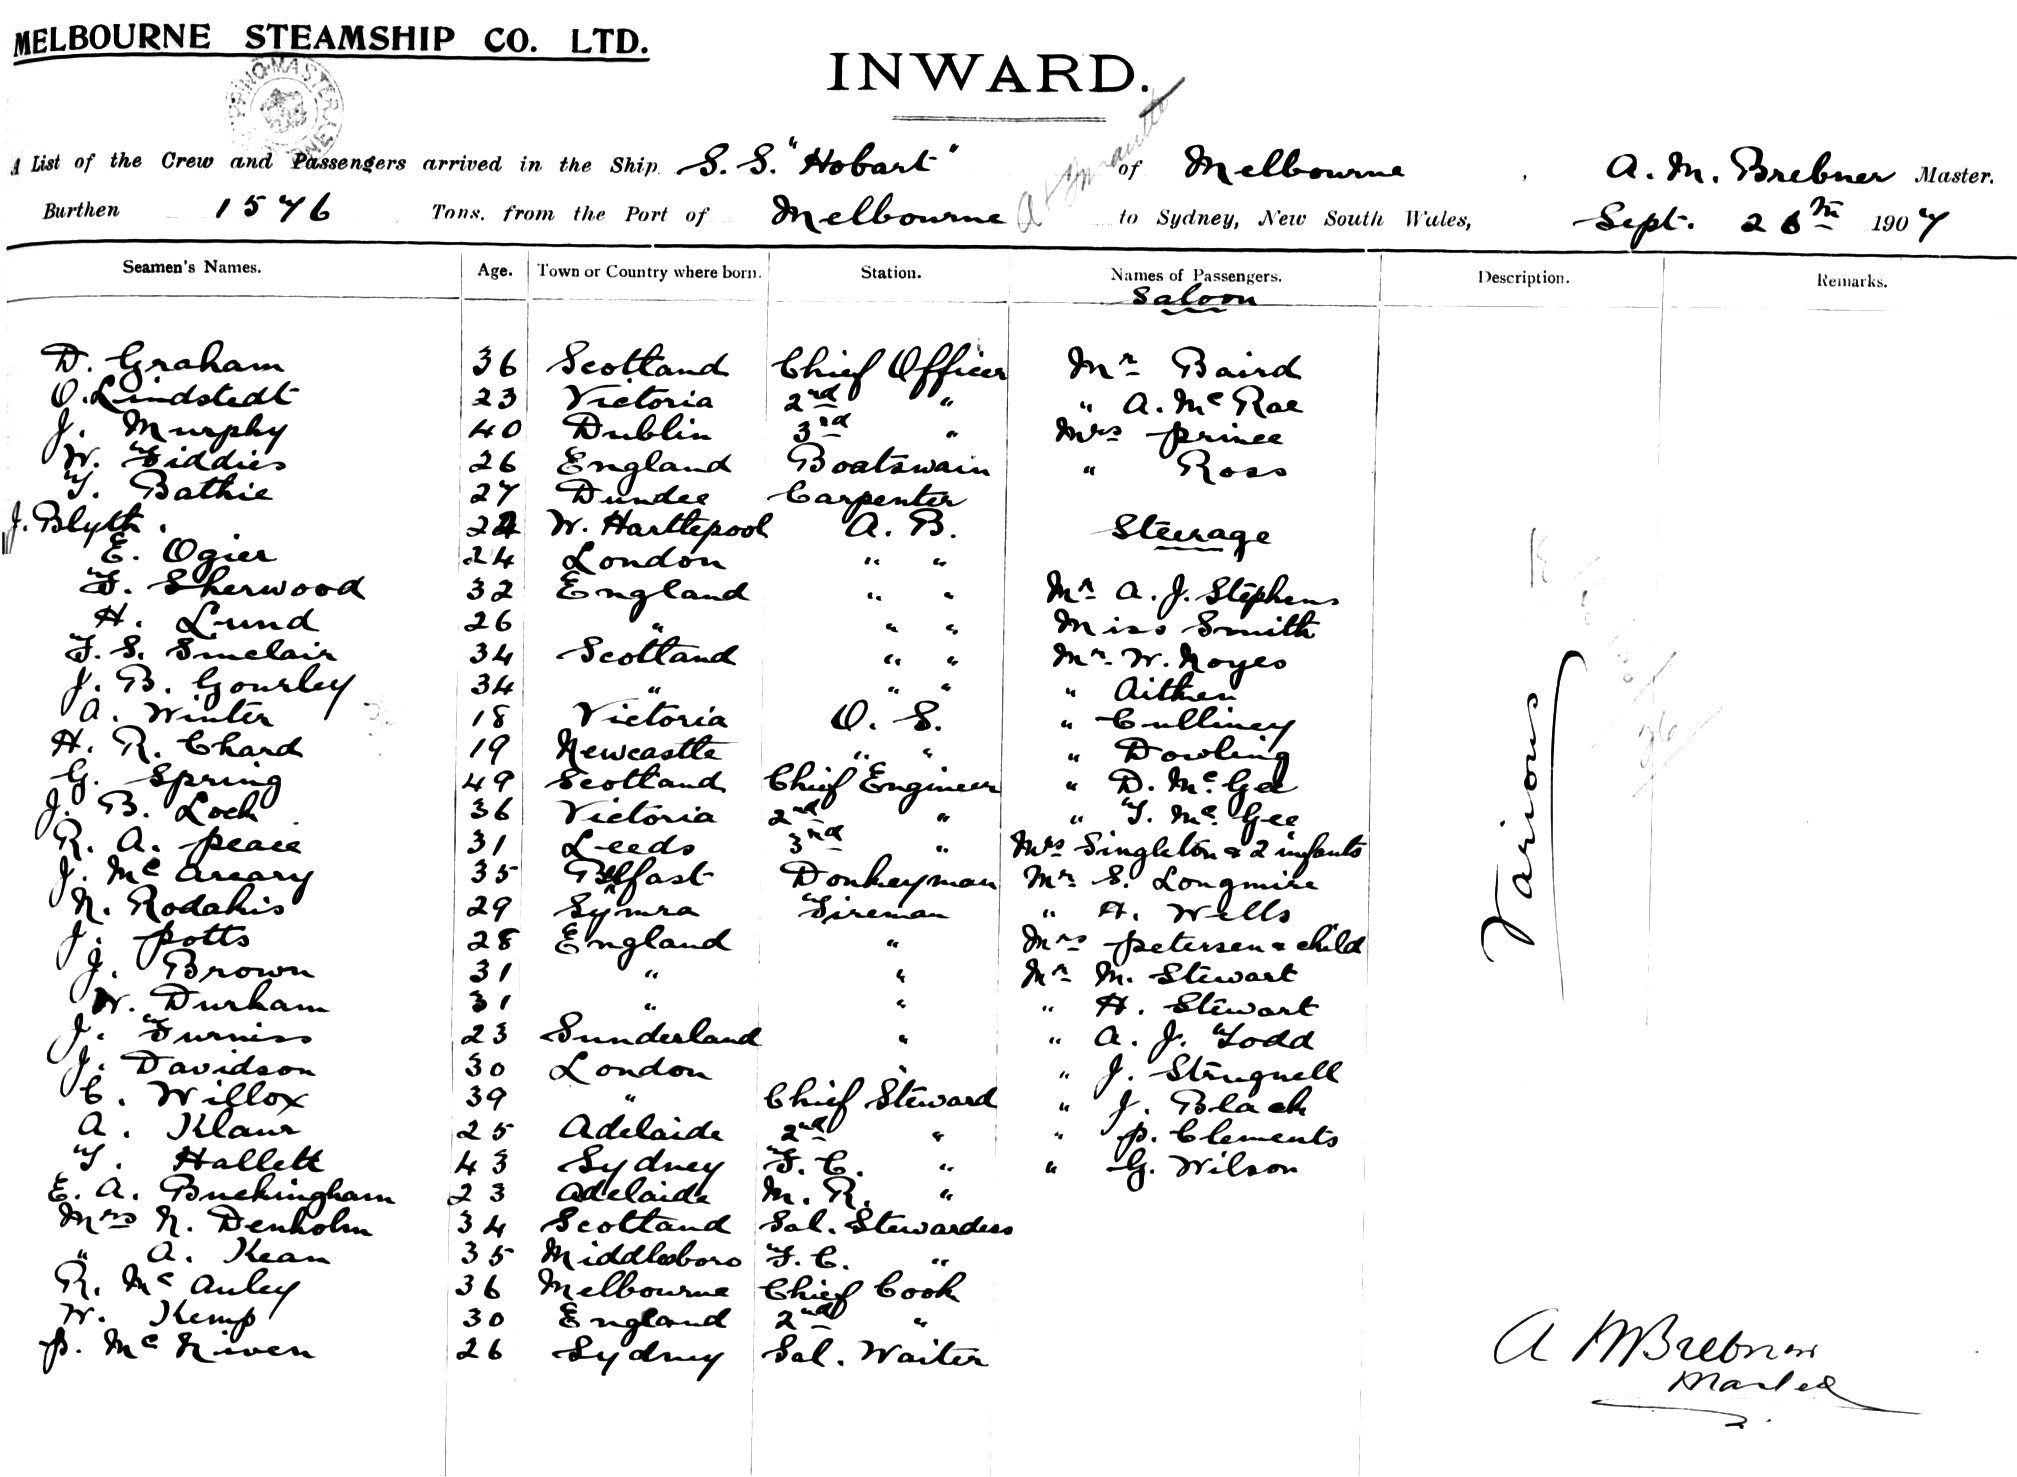 MELBOURNE STEAMSHIP CO. LTD.
INWARD.
A List of the Crew and Passengers arrived in the Ship S.S. "Hobart" of Melbourne, A. M. Brebner Master.
Burthen 1576 Tons. from the Port of Melbourne to Sydney, New South Wales, Sept. 26th 1907
Seamen's Names. Age. Town or Country where born. Station. Names of Passengers. Description. Remarks.
Saloon
D. Graham 36 Scotland Chief Officer Mr Baird
O. Lindstedt 23 Victoria 2nd " " A. McRae
J. Murphy 40 Dublin 3rd " Mrs Prince
W. Fiddies 26 England Boatswain " Ross
T. Bathie 27 Dundee Carpenter
J. Blyth. W. Hartlepool A. B. Steerage
E. Ogier 24 London " "
F. Sherwood 32 England " " Mr A. J. Stephens
H. Lund 26 " " " Miss Smith
F. S. Sinclair 34 Scotland " " Mr W. Noyes
J. B. Gourley 34 " " " " Aitken
A. Winter 18 Victoria O. S. " Culliney
H. R. Chard 19 Newcastle " " " Dowling
G. Spring 49 Scotland Chief Engineer " D. McGee
J. B. Lock 36 Victoria 2nd " " T. McGee
R. A. Peace 31 Leeds 3rd " Mrs Singleton & 2 infants
J. McAreary 35 Belfast Donkeyman Mr S. Longmire
N. Rodakis 29 Symra Fireman " H. Wells
J. Potts 28 England " Mrs Petersen & child
J. Brown 31 " " Mr M. Stewart
W. Durham 31 " " " H. Stewart
J. Furniss 23 Sunderland " " A. J. Todd
J. Davidson 30 London " " J. Strugnell
C. Willox 39 " Chief Steward " J. Black
A. Klaur 25 Adelaide 2nd " " P. Clements
T. Hallett 43 Sydney F. C. " " G. Wilson
E. A. Buckingham 23 Adelaide M. R. "
Mrs N. Denholm 34 Scotland Sal. Stewardess
" A. Kean 35 Middlesboro F. C. "
R. McAuley 36 Melbourne Chief Cook
W. Kemp 30 England 2nd "
P. McNiven 26 Sydney Sal. Waiter
Various
A M Brebner
Master